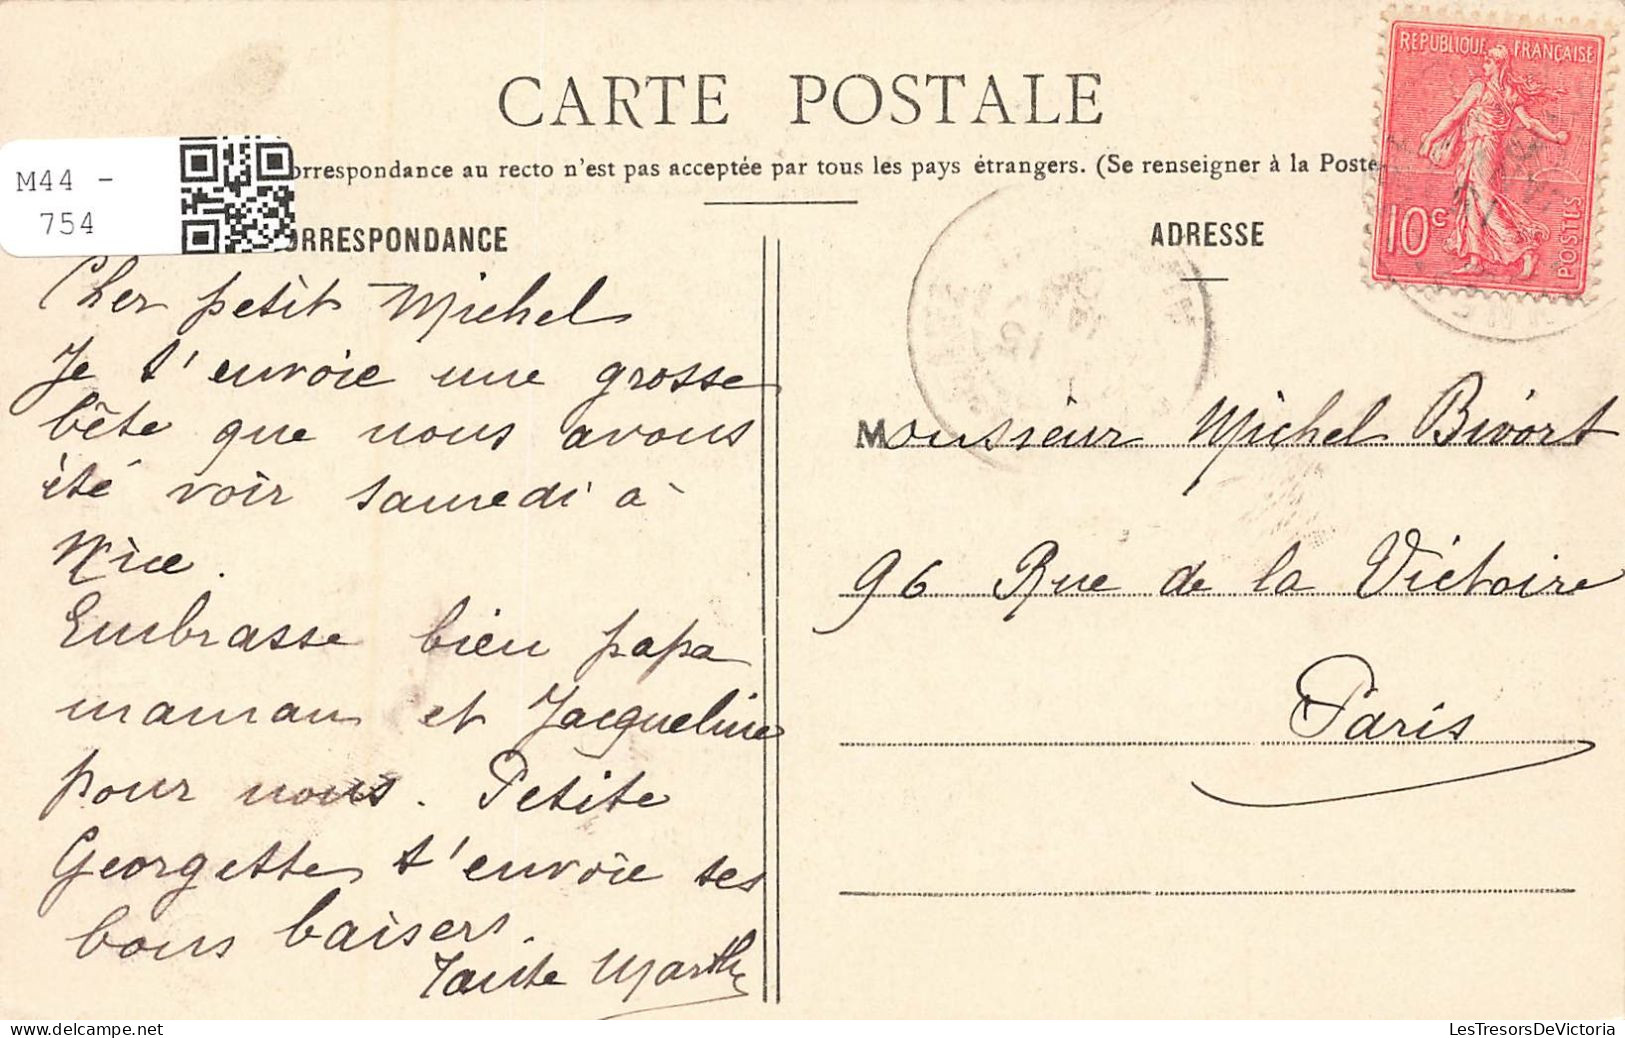 CARTE POSTALE
REPUBLIQUE FRANÇAISE
10c
POSTES
M44 -
754
orrespondance au recto n'est pas acceptée par tous les pays étrangers. (Se renseigner à la Poste
ORRESPONDANCE
ADRESSE
Cher petit Michel
Je t'envoie une grosse
bête que nous avons
été voir samedi à
Nice.
Embrasse bien papa
maman et Jacqueline
pour nous. Petite
Georgette t'envoie ses
bons baisers.
Tante Marthe
Monsieur Michel Bivort
96 Rue de la Victoire
Paris
Image has been uploaded by user Victoria
LesTresorsDeVictoria.com